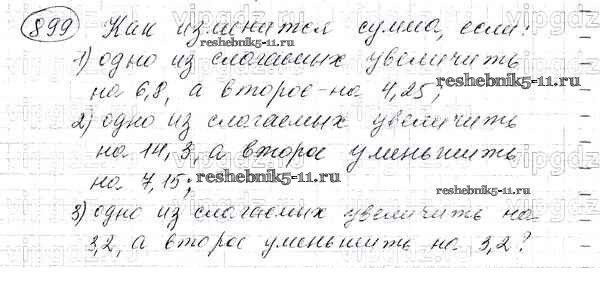 899 Как изменится сумма, если:
1) одно из слагаемых увеличить
на 6,8, а второе - на 4,25;
2) одно из слагаемых увеличить
на 14,3, а второе уменьшить
на 7,15;
3) одно из слагаемых увеличить на
3,2, а второе уменьшить на 3,2?
reshebnik5-11.ru
reshebnik5-11.ru
reshebnik5-11.ru
reshebnik5-11.ru